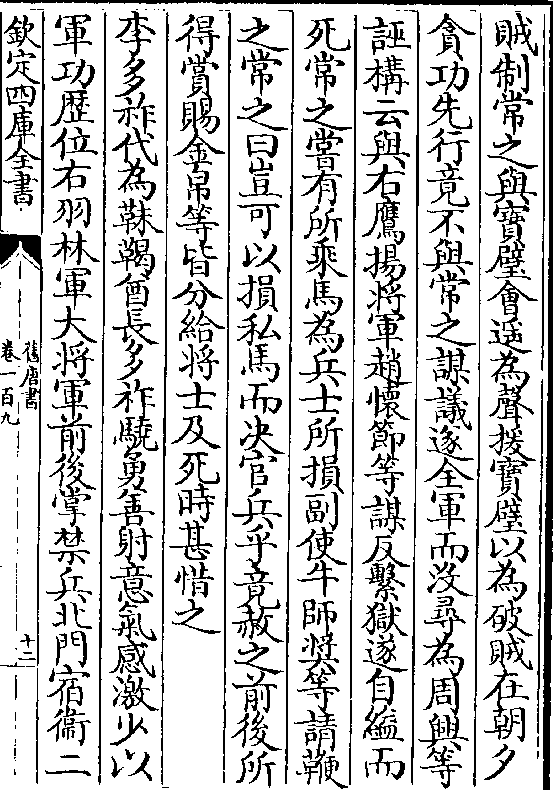 賊制常之與寳璧會遥為聲援寳璧以為破賊在朝夕
貪功先行竟不與常之謀議遂全軍而没尋為周興等
誣構云與右鷹揚将軍趙懐節等謀反繫獄遂自縊而
死常之嘗有所乗馬為兵士所損副使牛師奨等請鞭
之常之曰豈可以損私馬而决官兵乎竟赦之前後所
得賞賜金帛等皆分給将士及死時甚惜之
李多祚代為靺鞨酋長多祚驍勇善射意氣感激少以
軍功歴位右羽林軍大将軍前後掌禁兵北門宿衞二
欽定四庫全書
舊唐書
卷一百九
十二